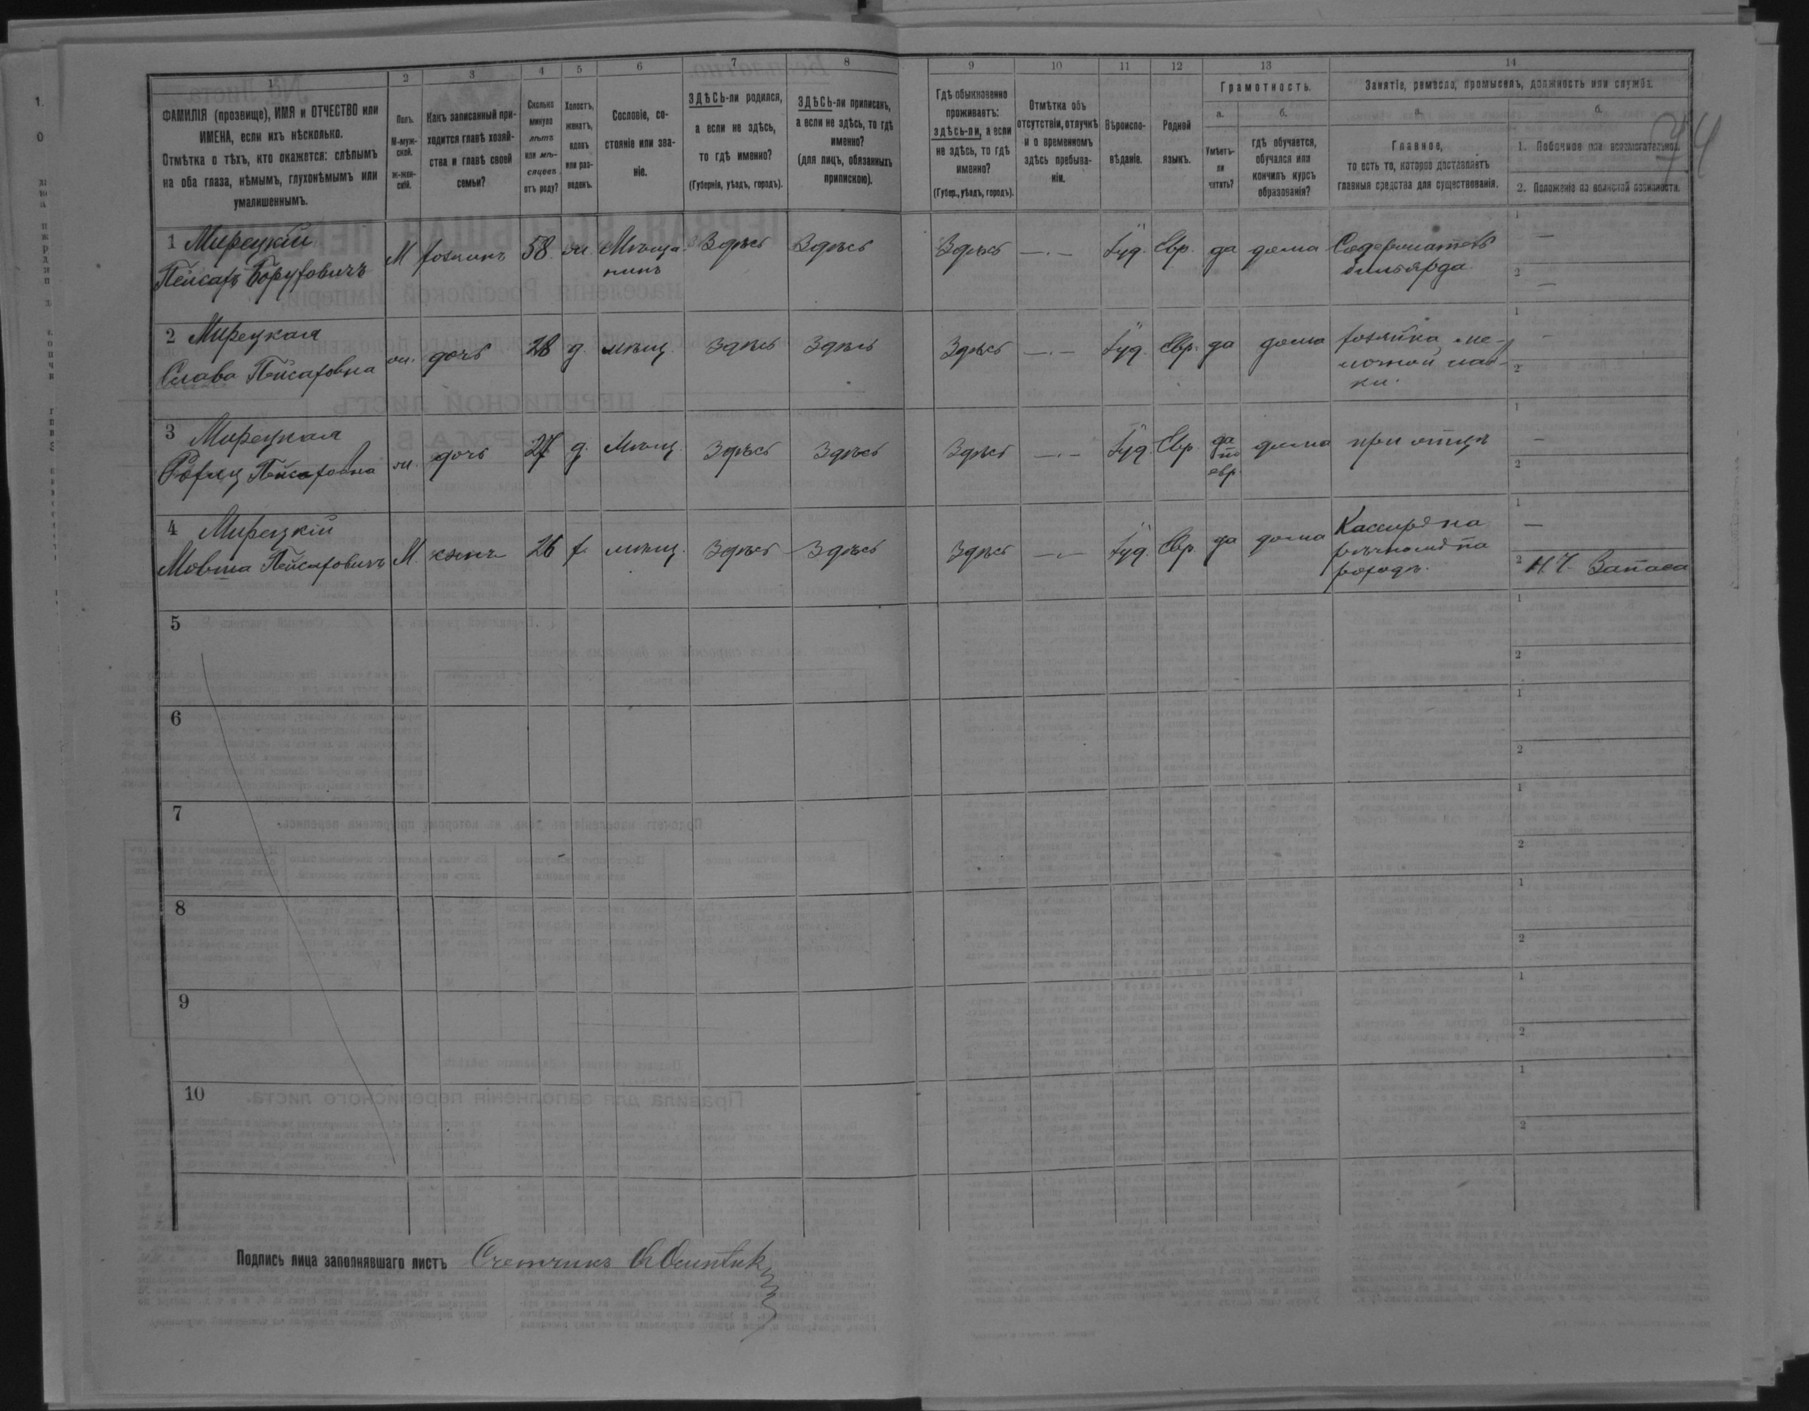 1 2 3 4 5 6 7 8 9 10 11 12 13 14
ФАМИЛІЯ (прозвище), ИМЯ и ОТЧЕСТВО или
ИМЕНА, если ихъ нѣсколько.
Отмѣтка о тѣхъ, кто окажется: слѣпымъ
на оба глаза, нѣмымъ, глухонѣмымъ или
умалишеннымъ.
Полъ.
М-муж-
ской.
Ж-жен-
скій.
Какъ записанный при-
ходится главѣ хозяй-
ства и главѣ своей
семьи?
Сколько
минуло
лѣтъ
или мѣ-
сяцевъ
отъ роду?
Холостъ,
женатъ,
вдовъ
или раз-
веденъ.
Сословіе, со-
стояніе или зва-
ніе.
ЗДѢСЬ-ли родился,
а если не здѣсь,
то гдѣ именно?
(Губернія, уѣздъ, городъ).
ЗДѢСЬ-ли приписанъ,
а если не здѣсь, то гдѣ
именно?
(для лицъ, обязанныхъ
припискою).
Гдѣ обыкновенно
проживаетъ:
здѣсь-ли, а если
не здѣсь, то гдѣ
именно?
(Губер., уѣздъ, городъ).
Отмѣтка объ
отсутствіи, отлучкѣ
и о временномъ
здѣсь пребыва-
ніи.
Вѣроиспо-
вѣданіе.
Родной
языкъ.
Грамотность.
а.
Умѣетъ-
ли
читать?
б.
гдѣ обучается,
обучался или
кончилъ курсъ
образованія?
Занятіе, ремесло, промыселъ, должность или служба.
а.
Главное,
то есть то, которое доставляетъ
главныя средства для существованія.
б.
1. Побочное или вспомогательное.
2. Положеніе по воинской повинности.
1 Мирецкій
Пейсахъ Боруховичъ М хозяинъ 58 ж. Мѣща-
нинъ Здѣсь Здѣсь Здѣсь —.— Іуд. Евр. да дома Содержатель
бильярда. 1 — 2 —
2 Мирецкая
Слава Пейсаховна ж. дочь 28 д. мѣщ. Здѣсь Здѣсь Здѣсь —.— Іуд. Евр. да дома хозяйка
лав-
ки. 1 — 2
3 Мирецкая
Пейсаховна ж. дочь 27 д. Мѣщ. Здѣсь Здѣсь Здѣсь —.— Іуд. Евр. да
по
евр. дома при отцѣ 1 — 2
4 Мирецкій
Мовша Пейсаховичъ М. сынъ 26 х. мѣщ. Здѣсь Здѣсь Здѣсь —.— Іуд. Евр. да дома Кассиръ на
рѣчномъ па
роходѣ. 1 — 2 Н. Ч. Запаса
5 1 2
6 1 2
7 1 2
8 1 2
9 1 2
10 1 2
Подпись лица заполнявшаго листъ Счетчикъ